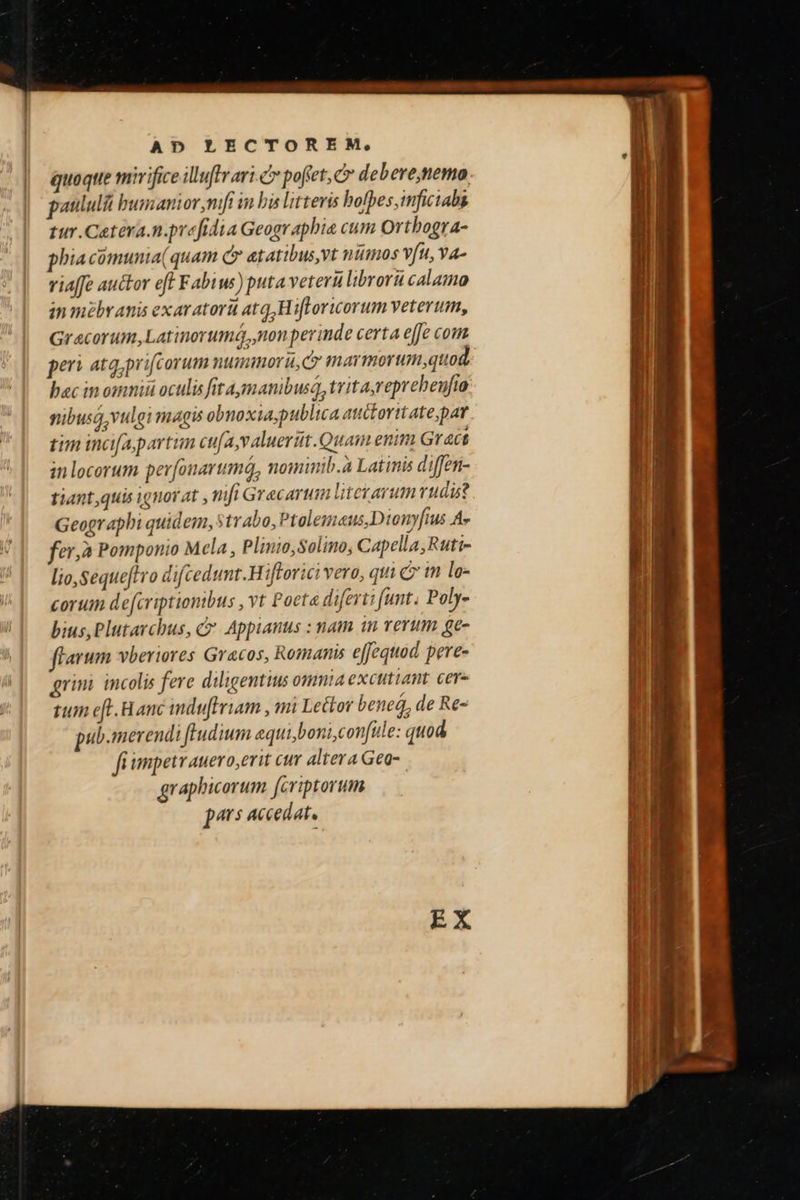 AD LECTOREM.
quoque mirifice illuſtrari & poſſet, & debere, nemo
paululũ humanior, niſi in his litteris hoſpes, inficiabi
tur. Cætera.n. præſidia Geographiæ cum Orthogra-
phia cōmunia (quam & ætatibus, vt nũmos vſu, va-
riaſſe auctor eſt Fabius) puta veterũ librorũ calamo
in mēbranis exaratorũ atq́, Hiſtoricorum veterum,
Græcorum, Latinorumq́, non perinde certa eſſe com
peri atq́, priſcorum nummorũ, & marmorum, quod
hæc in omniũ oculis ſita, manibusq́, trita, reprehenſio
nibusq́, vulgi magis obnoxia, publica auctoritate, par
tim inciſa, partim cuſa, valuerũt. Quam enim Græci
in locorum perſonarumq́, nominib. à Latinis diſſen-
tiant, quis ignorat, niſi Græcarum literarum rudis?
Geographi quidem, Strabo, Ptolemæus, Dionyſius A-
fer, à Pomponio Mela, Plinio, Solino, Capella, Ruti-
lio, Sequeſtro diſcedunt. Hiſtorici vero, qui & in lo-
corum deſcriptionibus, vt Poetæ diſerti ſunt. Poly-
bius, Plutarchus, & Appianus : nam in rerum ge-
ſtarum vberiores Græcos, Romanis eſſe quod pere-
grini incolis fere diligentius omnia excutiant cer-
tum eſt. Hanc induſtriam, mi Lector beneq́, de Re-
pub. merendi ſtudium æqui, boni, conſule: quod
ſi impetrauero, erit cur altera Geo-
graphicorum ſcriptorum
pars accedat.
EX